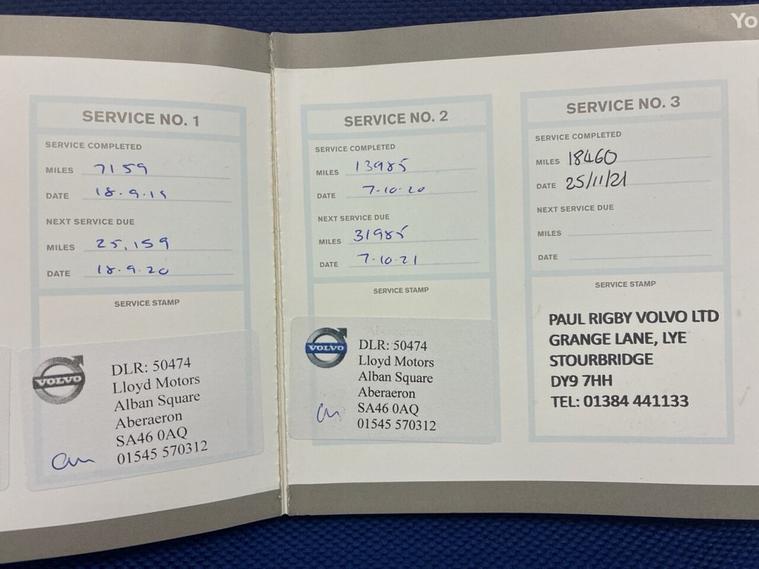 Yo
SERVICE NO. 1
SERVICE COMPLETED
MILES 7159
DATE 18.9.19
NEXT SERVICE DUE
MILES 25,159
DATE 18.9.20
SERVICE STAMP
VOLVO
DLR: 50474
Lloyd Motors
Alban Square
Aberaeron
SA46 0AQ
01545 570312
SERVICE NO. 2
SERVICE COMPLETED
MILES 13985
DATE 7-10-20
NEXT SERVICE DUE
MILES 31985
DATE 7-10-21
SERVICE STAMP
VOLVO
DLR: 50474
Lloyd Motors
Alban Square
Aberaeron
SA46 0AQ
01545 570312
SERVICE NO. 3
SERVICE COMPLETED
MILES 18460
DATE 25/11/21
NEXT SERVICE DUE
MILES
DATE
SERVICE STAMP
PAUL RIGBY VOLVO LTD
GRANGE LANE, LYE
STOURBRIDGE
DY9 7HH
TEL: 01384 441133